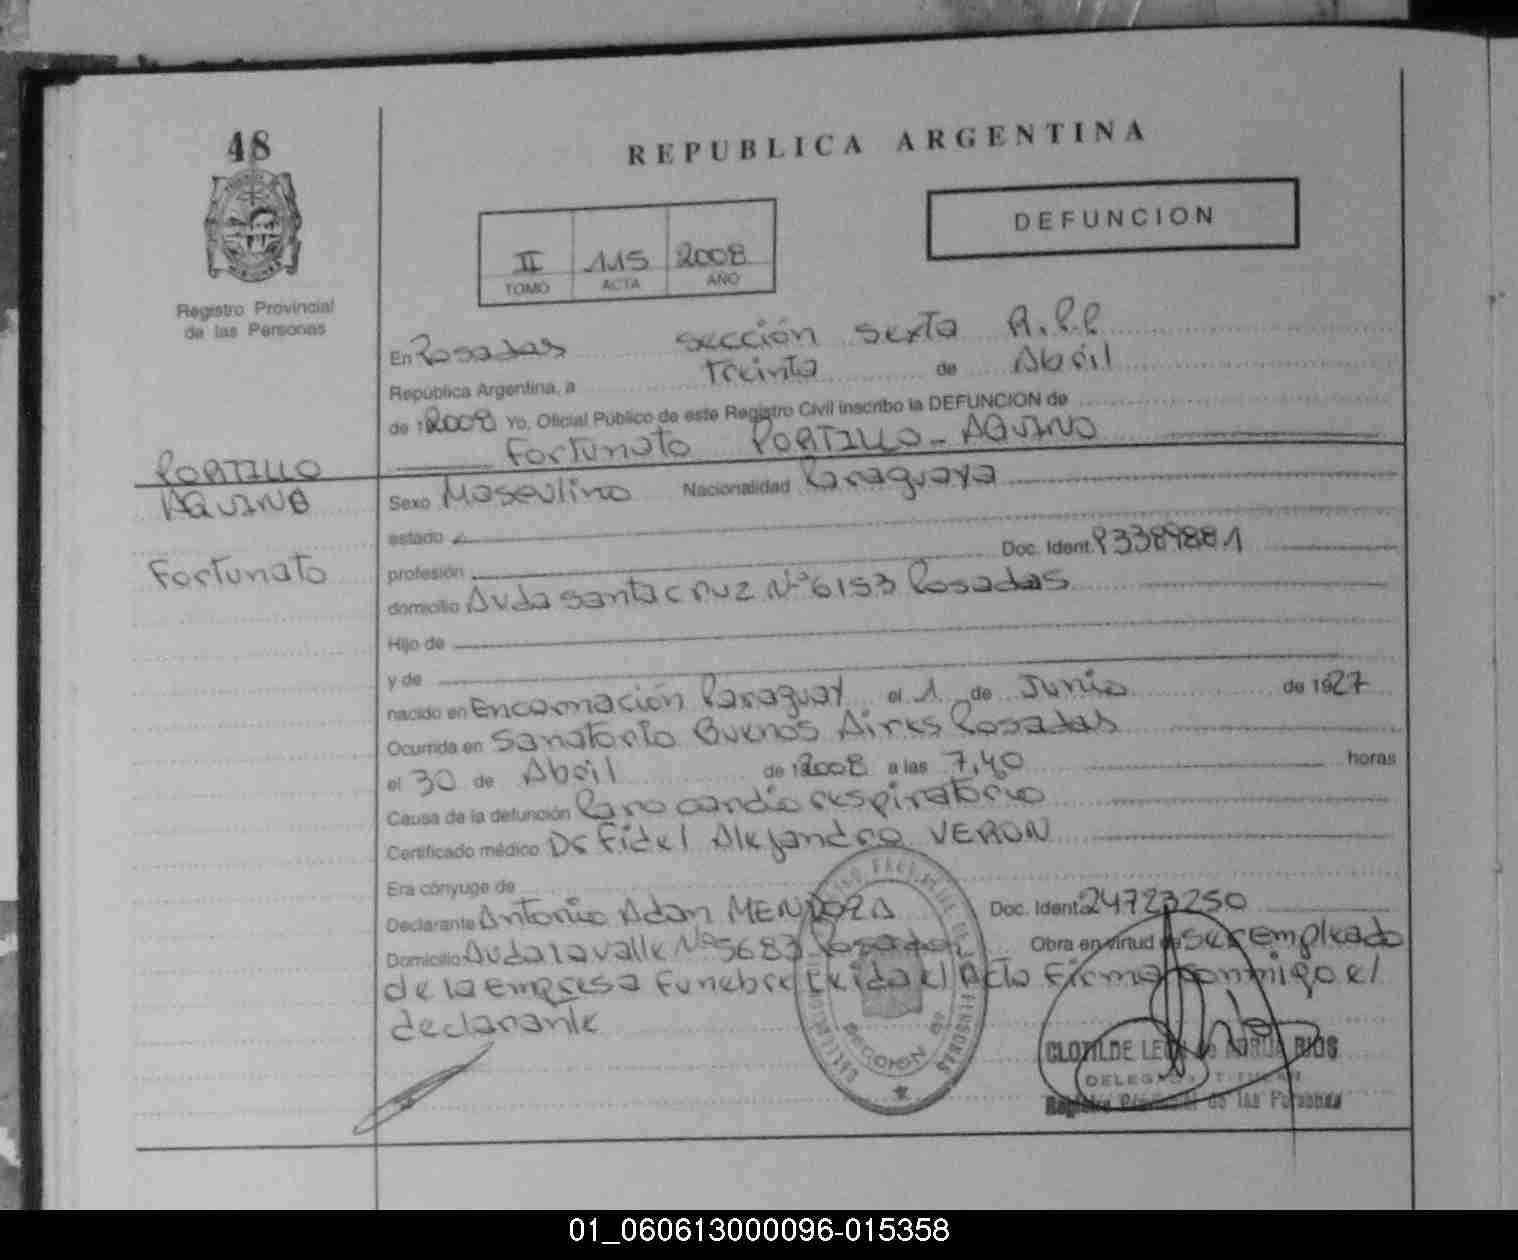 48
REPUBLICA ARGENTINA
DEFUNCION
II 115 2008
TOMO ACTA AÑO
Registro Provincial
de las Personas
En Posadas sección sexta R.P.P
República Argentina, a Treinta de Abril
de 12008 Yo, Oficial Público de este Registro Civil inscribo la DEFUNCION de
Fortunato PORTILLO - AQUINO
PORTILLO
AQUINO
Fortunato
Sexo Masculino Nacionalidad Paraguaya
estado
profesión Doc. Ident. 93389881
domicilio Avda santa cruz Nº 6153 Posadas
Hijo de
y de
nacido en Encarnación Paraguay el 1 de Junio de 1927
Ocurrida en Sanatorio Buenos Aires Posadas
el 30 de Abril de 12008 a las 7,40 horas
Causa de la defunción Paro cardio respiratorio
Certificado médico Dr Fidel Alejandro VERON
Era cónyuge de
Declarante Antonio Adan MENDOZA Doc. Ident. 24723250
Domicilio Avda lavalle Nº 5683 Posadas Obra en virtud de ser empleado
de la empresa Funebre Leida el Acta Firma conmigo el
declarante
CLOTILDE RIOS
DELEGADA TITULAR
Registro Provincial de las Personas
01_060613000096-015358